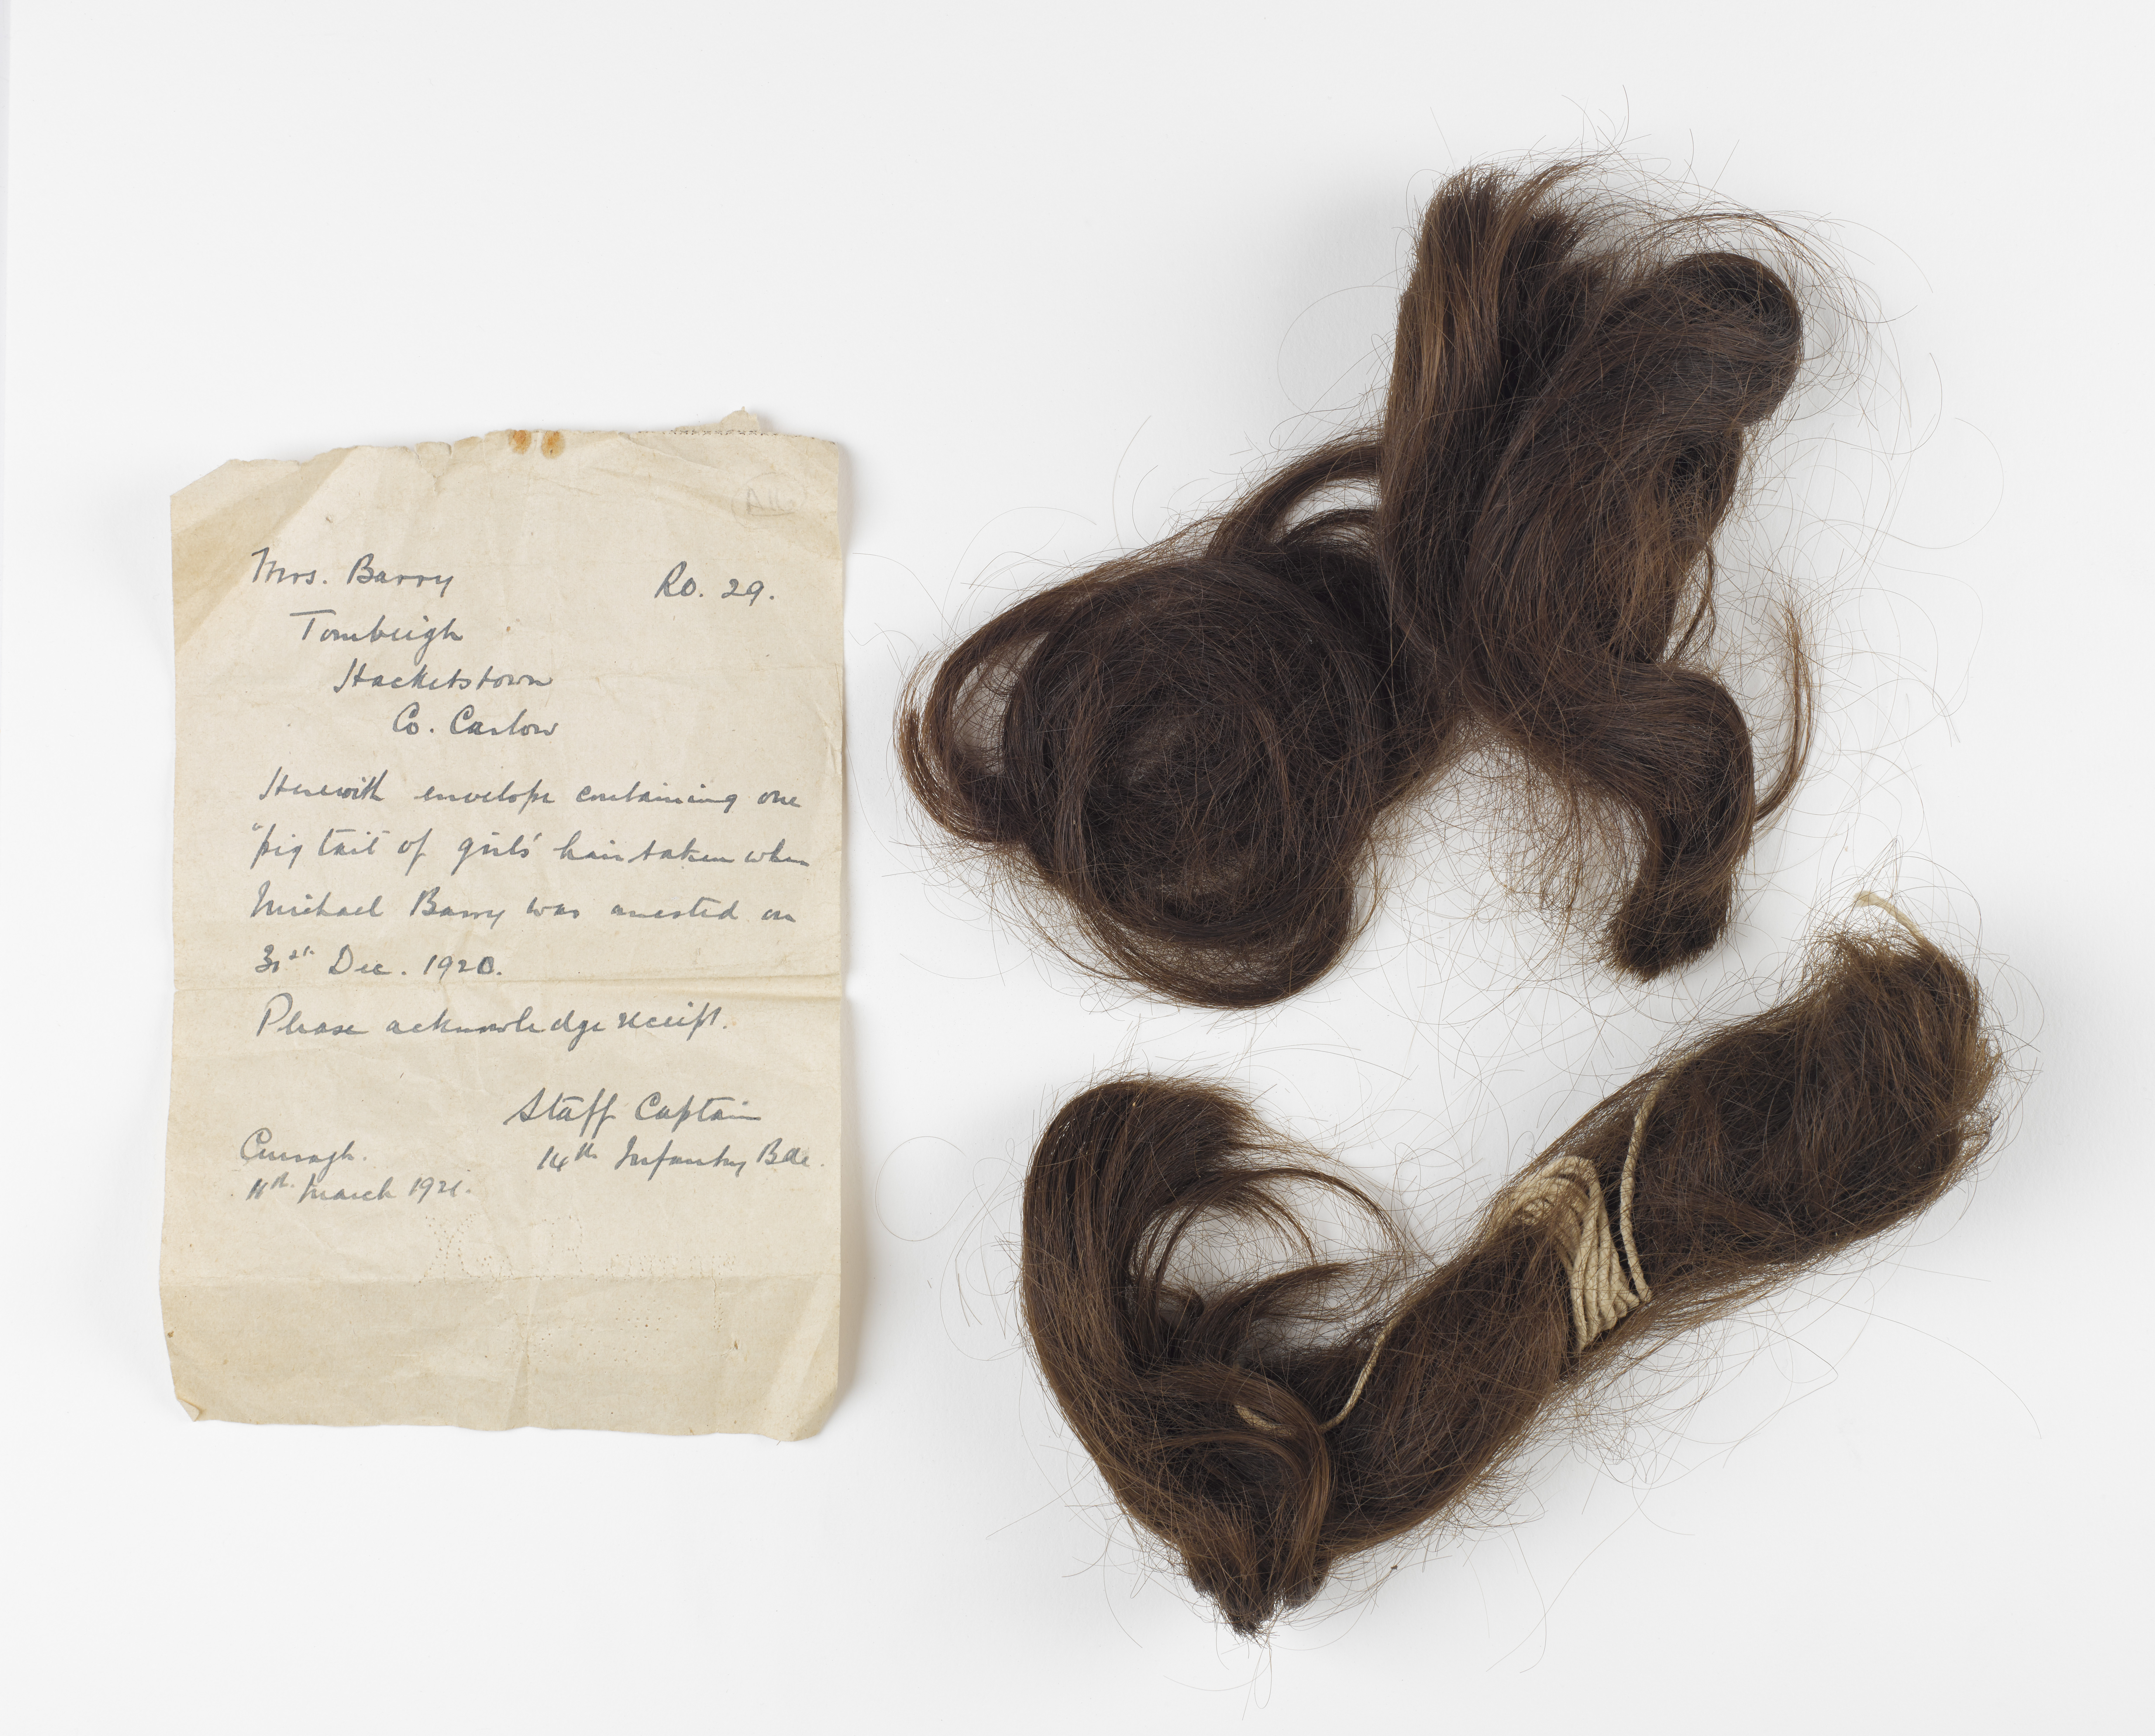 Mrs. Barry RO. 29.
Tombeigh
Hacketstown
Co. Carlow
Herewith envelope containing one
"pig tail" of girls' hair taken when
Michael Barry was arrested on
31st Dec. 1920.
Please acknowledge receipt.
Staff Captain
Curragh. 14th Infantry Bde.
11th March 1921.